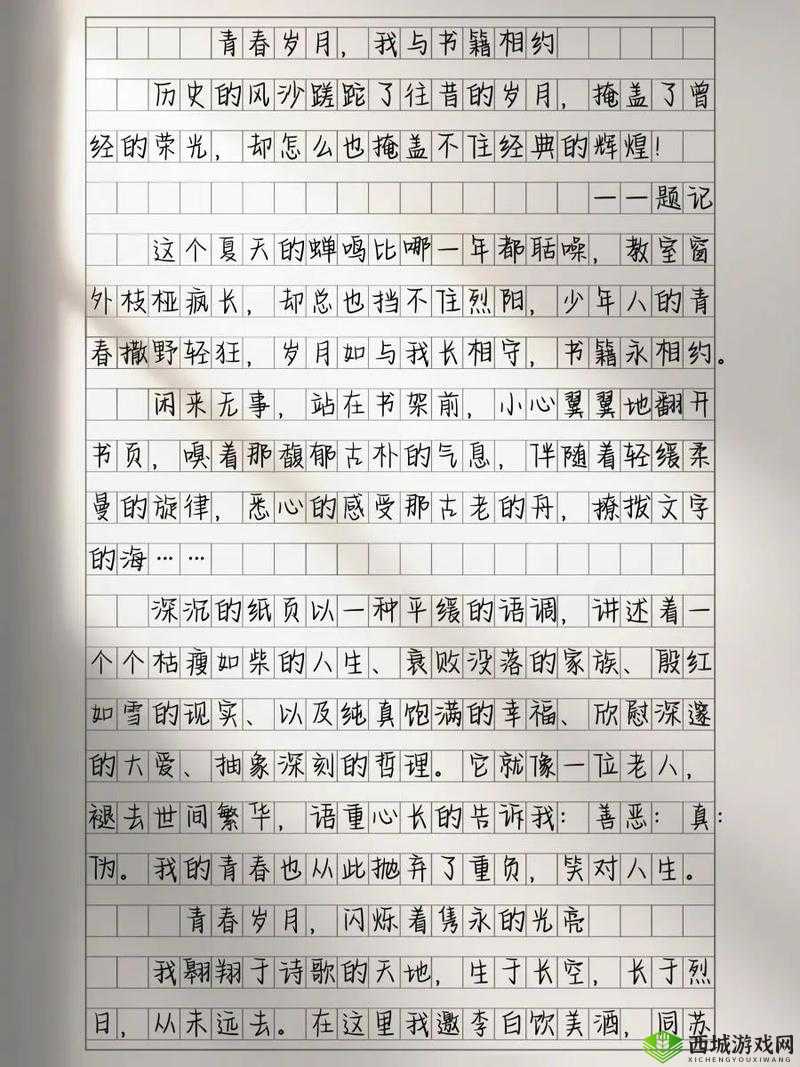 青春岁月，我与书籍相约
历史的风沙蹉跎了往昔的岁月，掩盖了曾
经的荣光，却怎么也掩盖不住经典的辉煌！
——题记
这个夏天的蝉鸣比哪一年都聒噪，教室窗
外枝桠疯长，却总也挡不住烈阳，少年人的青
春撒野轻狂，岁月如与我长相守，书籍永相约。
闲来无事，站在书架前，小心翼翼地翻开
书页，嗅着那馥郁古朴的气息，伴随着轻缓柔
曼的旋律，悉心的感受那古老的舟，撩拨文字
的海……
深沉的纸页以一种平缓的语调，讲述着一
个个枯瘦如柴的人生、衰败没落的家族、殷红
如雪的现实、以及纯真饱满的幸福、欣慰深邃
的大爱、抽象深刻的哲理。它就像一位老人，
褪去世间繁华，语重心长的告诉我：善恶：真：
伪。我的青春也从此抛弃了重负，笑对人生。
青春岁月，闪烁着隽永的光亮
我翱翔于诗歌的天地，生于长空，长于烈
日，从未远去。在这里我邀李白饮美酒，同苏
西城游戏网
XICHENGYOUXIWANG